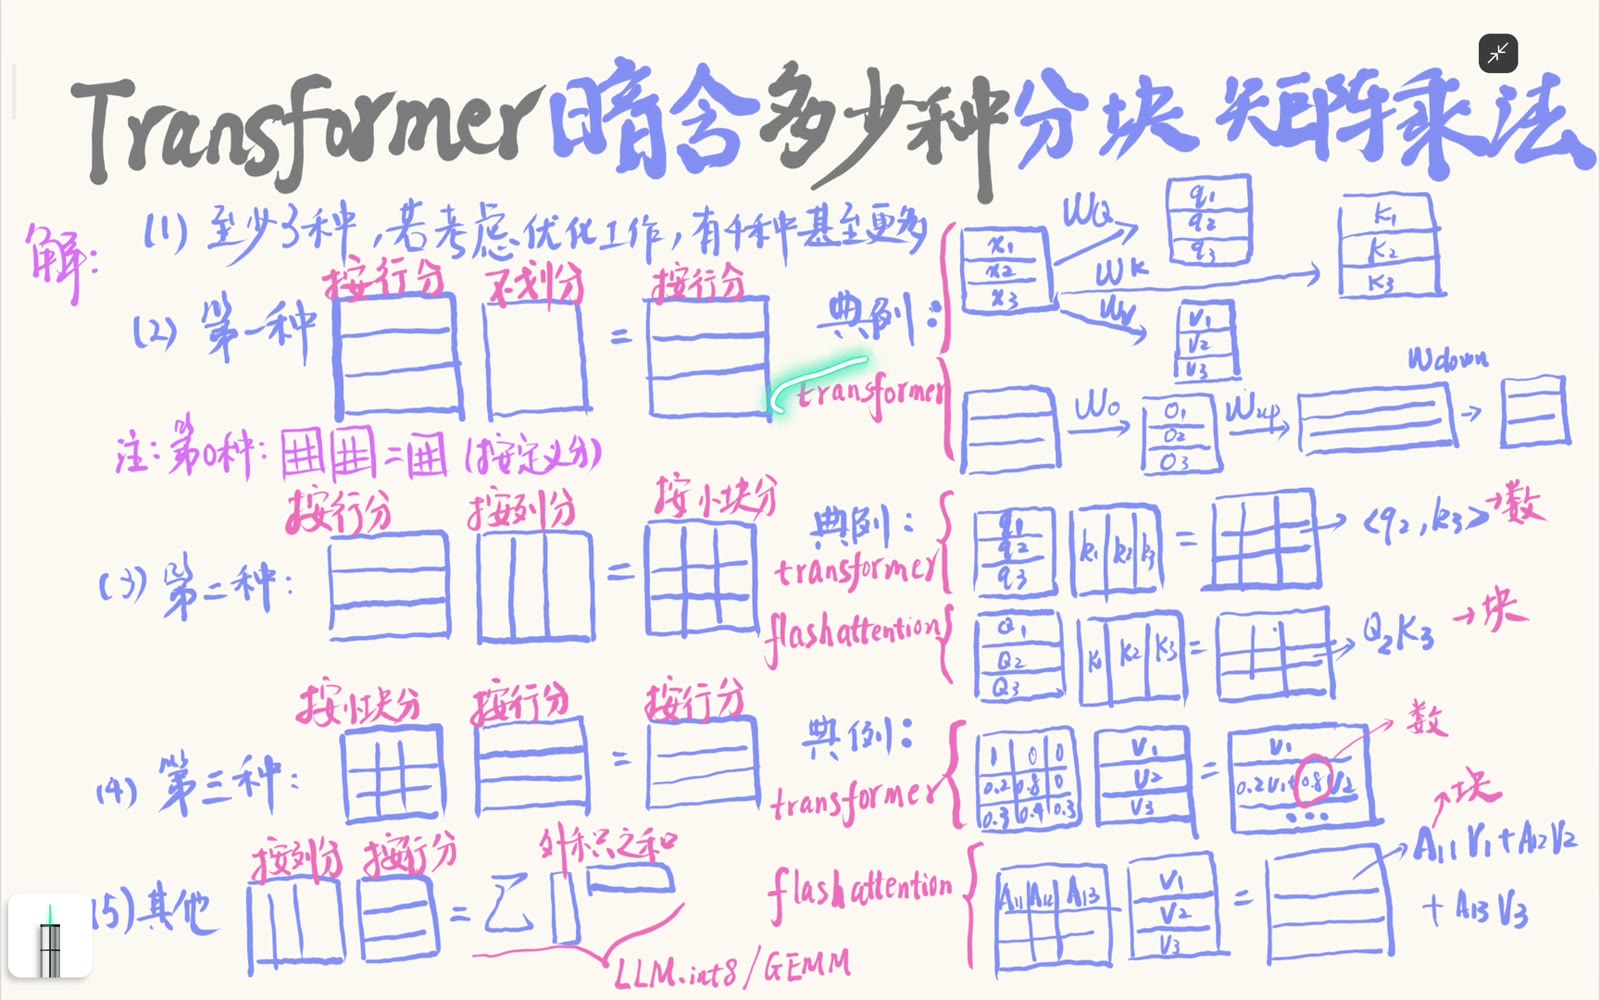 Transformer暗含多少种分块矩阵乘法
解:
(1) 至少3种,若考虑优化工作,有4种甚至更多
(2) 第一种
按行分 不划分 = 按行分
典例:
transformer
x1
x2
x3
WQ
WK
WV
q1
q2
q3
K1
K2
K3
V1
V2
V3
WO
O1
O2
O3
Wup
Wdown
注:第0种: = (按定义分)
(3) 第二种:
按行分 按列分 = 按小块分
典例:
transformer
q1
q2
q3
k1 k2 k3
= → <q2,k3> → 数
flashattention
Q1
Q2
Q3
K1 K2 K3
= → Q2K3 → 块
(4) 第三种:
按小块分 按行分 = 按行分
典例:
transformer
1 0 0
0.2 0.8 0
0.3 0.4 0.3
V1
V2
V3
=
V1
0.2V1+0.8V2
...
数
flashattention
A11 A12 A13
V1
V2
V3
= → A11V1+A12V2
+A13V3
块
(5) 其他
按列分 按行分 = Σ 外积之和
LLM.int8/GEMM